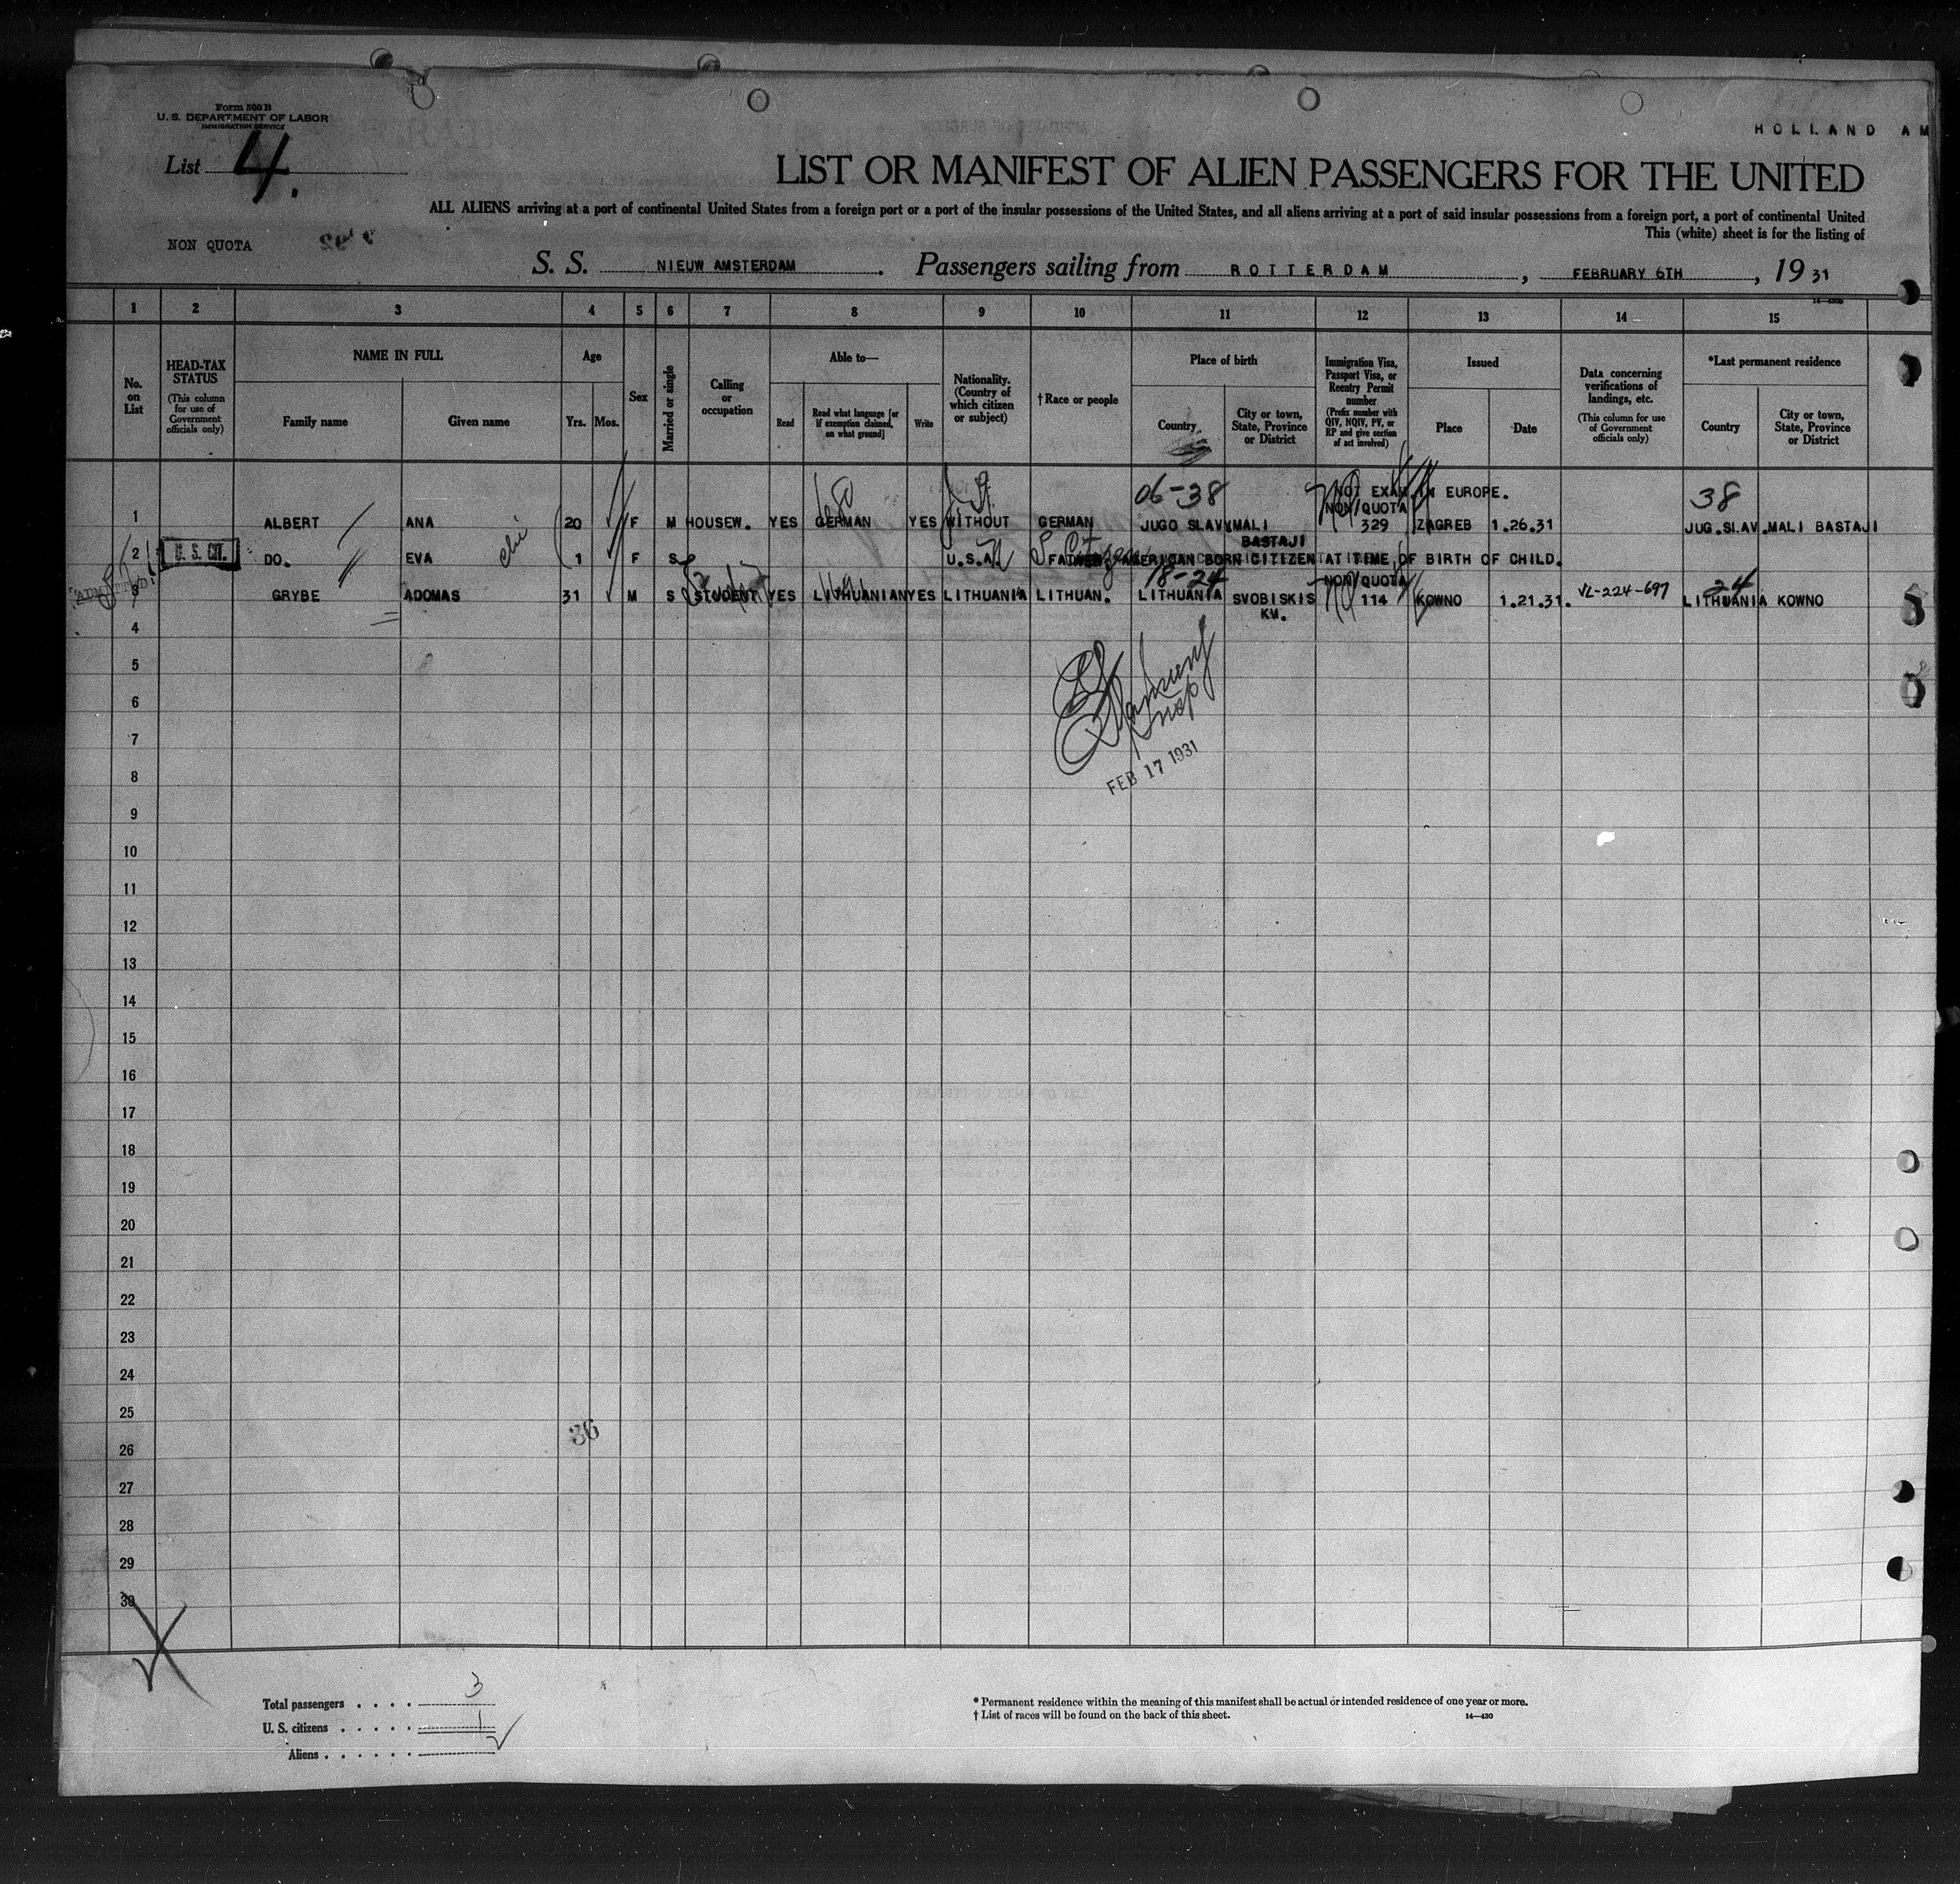 Form 500 B
U. S. DEPARTMENT OF LABOR
IMMIGRATION SERVICE
HOLLAND AM
List 4.
LIST OR MANIFEST OF ALIEN PASSENGERS FOR THE UNITED
ALL ALIENS arriving at a port of continental United States from a foreign port or a port of the insular possessions of the United States, and all aliens arriving at a port of said insular possessions from a foreign port, a port of continental United
This (white) sheet is for the listing of
NON QUOTA
S. S. NIEUW AMSTERDAM. Passengers sailing from ROTTERDAM, FEBRUARY 6TH, 1931
1 2 3 4 5 6 7 8 9 10 11 12 13 14 15
No. on List
HEAD-TAX STATUS (This column for use of Government officials only)
NAME IN FULL
Family name
Given name
Age
Yrs. Mos.
Sex
Married or single
Calling or occupation
Able to—
Read
Read what language [or if exemption claimed, on what ground]
Write
Nationality. (Country of which citizen or subject)
†Race or people
Place of birth
Country
City or town, State, Province or District
Immigration Visa, Passport Visa, or Reentry Permit number (Prefix number with QIV, NQIV, PV, or RP and give section of act involved)
Issued
Place
Date
Data concerning verifications of landings, etc. (This column for use of Government officials only)
*Last permanent residence
Country
City or town, State, Province or District
06-38 NOT EXAM. IN EUROPE. 38
NON QUOTA
1 ALBERT ANA 20 F M HOUSEW. YES GERMAN YES WITHOUT GERMAN JUGO SLAV MALI 329 ZAGREB 1.26.31 JUG.SLAV. MALI BASTAJI
BASTAJI
2 U. S. CIT. DO. EVA 1 F S U.S.A. FATHER AMERICAN BORN CITIZEN AT TIME OF BIRTH OF CHILD.
18-24 NON QUOTA 24
3 GRYBE ADOMAS 31 M S STUDENT YES LITHUANIAN YES LITHUANIA LITHUAN. LITHUANIA SVOBISKIS 114 KOWNO 1.21.31. VL-224-697 LITHUANIA KOWNO
KM.
4
5
6
7
8
FEB 17 1931
9
10
11
12
13
14
15
16
17
18
19
20
21
22
23
24
25
36
26
27
28
29
30
Total passengers . . . . 3
U. S. citizens . . . . . 1
Aliens . . . . . .
* Permanent residence within the meaning of this manifest shall be actual or intended residence of one year or more.
† List of races will be found on the back of this sheet. 14—430